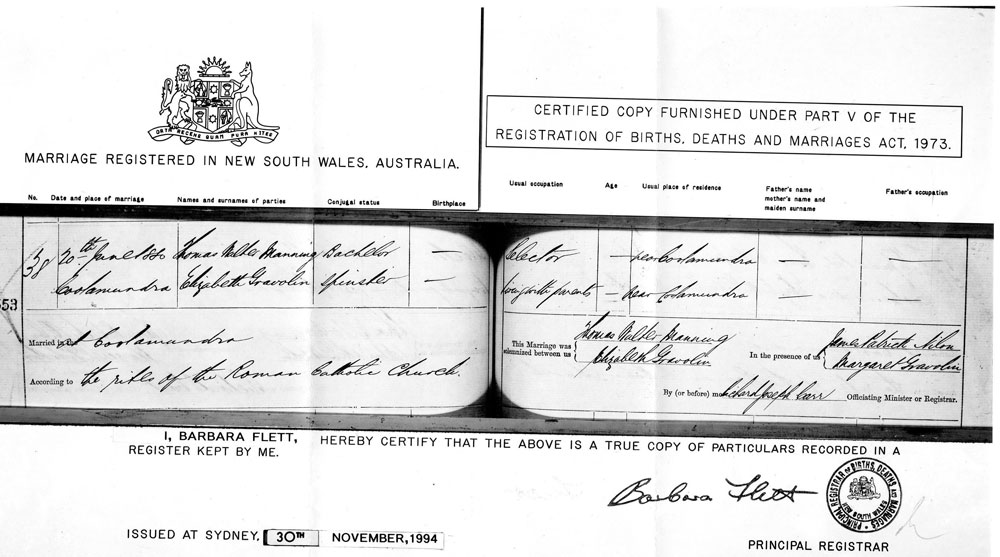 ORTA RECENS QUAM PURA NITES
MARRIAGE REGISTERED IN NEW SOUTH WALES, AUSTRALIA.
CERTIFIED COPY FURNISHED UNDER PART V OF THE
REGISTRATION OF BIRTHS, DEATHS AND MARRIAGES ACT, 1973.
No. Date and place of marriage Names and surnames of parties Conjugal status Birthplace Usual occupation Age Usual place of residence Father's name Father's occupation
mother's name and
maiden surname
20th June 1880 Thomas Walter Manning Bachelor — Selector — near Cootamundra — —
Cootamundra Elizabeth Gravolin Spinster — living with parents — near Cootamundra — —
553
Married in at Cootamundra
According to the rites of the Roman Catholic Church.
This Marriage was
solemnized between us
Thomas Walter Manning
Elizabeth Gravolin
In the presence of us
James Patrick
Margaret Gravolin
By (or before) me Richard Joseph Carr Officiating Minister or Registrar.
I, BARBARA FLETT, HEREBY CERTIFY THAT THE ABOVE IS A TRUE COPY OF PARTICULARS RECORDED IN A
REGISTER KEPT BY ME.
Barbara Flett
PRINCIPAL REGISTRAR OF BIRTHS, DEATHS AND MARRIAGES
NEW SOUTH WALES
ISSUED AT SYDNEY, 30TH NOVEMBER, 1994
PRINCIPAL REGISTRAR